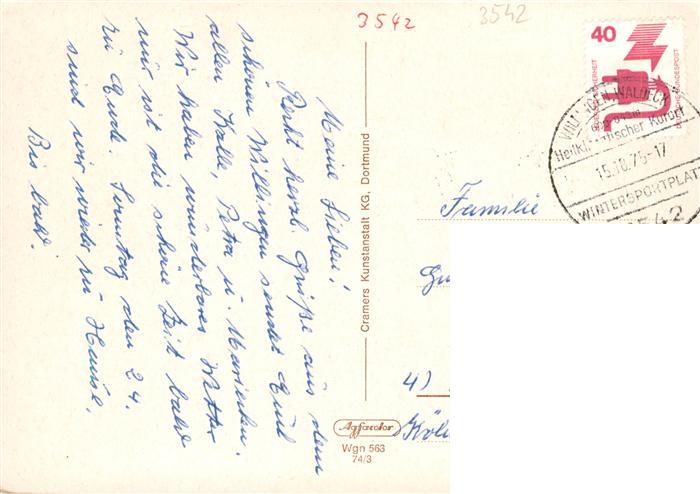 3542
3542
Meine Lieben!
Recht herzl. Grüße aus dem
schönen Willingen sendet Euch
allen Kalle, Petra u. Marieken.
Wir haben wunderbares Wetter
nur ist die schöne Zeit bald
zu Ende. Sonntag den 24.
sind wir wieder zu Hause.
Bis bald.
Cramers Kunstanstalt KG, Dortmund
Agfacolor
Wgn 563
74/3
40
DEUTSCHE BUNDESPOST
WILLINGEN, WALDECK
Heilklimatischer Kurort
15.10.76-17
WINTERSPORTPLATZ
3542
Familie
4)
Köl